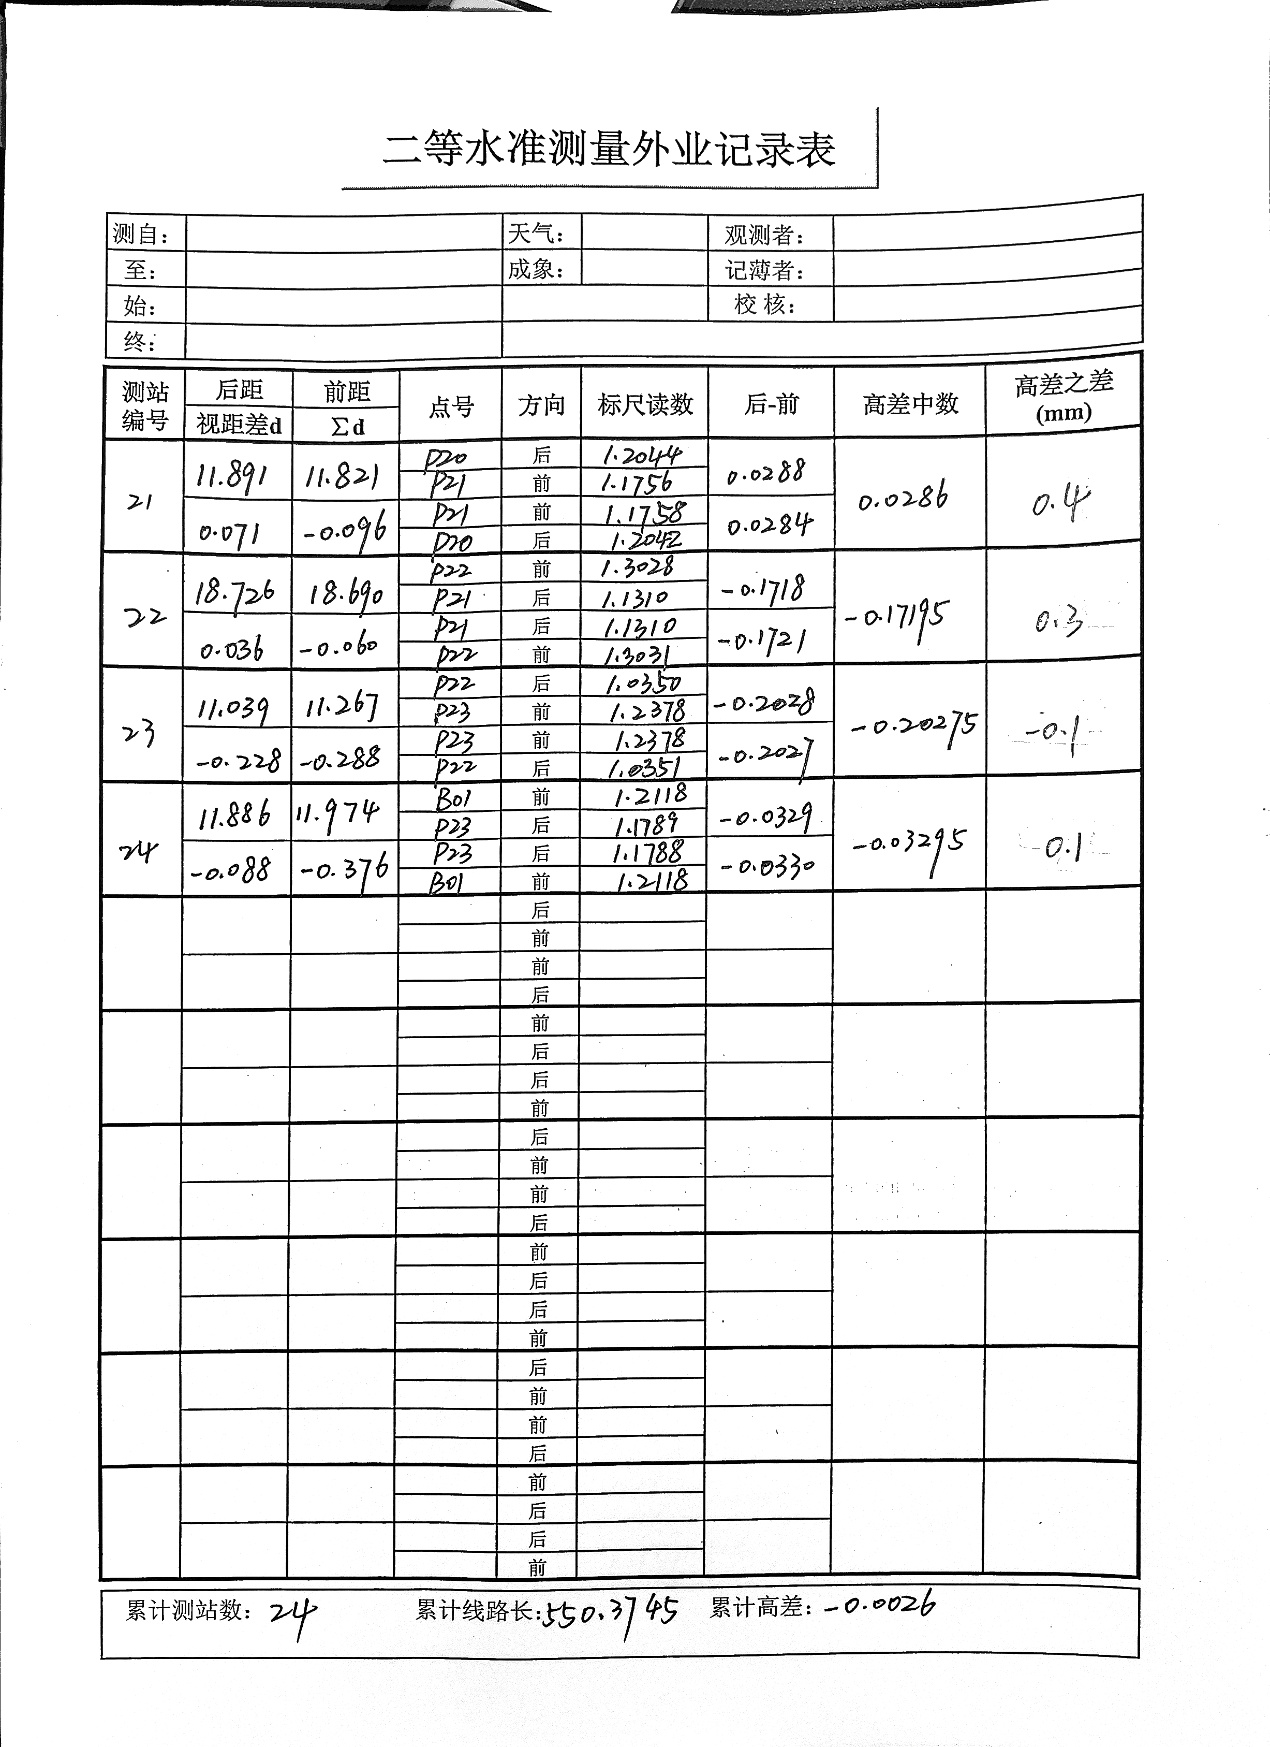 二等水准测量外业记录表
测自： 天气： 观测者：
至： 成象： 记薄者：
始： 校 核：
终：
测站编号 后距 前距 点号 方向 标尺读数 后-前 高差中数 高差之差(mm)
视距差d Σd
21 11.891 11.821 P20 后 1.2044 0.0288 0.0286 0.4
P21 前 1.1756
0.071 -0.096 P21 前 1.1758 0.0284
P20 后 1.2042
22 18.726 18.690 P22 前 1.3028 -0.1718 -0.17195 0.3
P21 后 1.1310
0.036 -0.060 P21 后 1.1310 -0.1721
P22 前 1.3031
23 11.039 11.267 P22 后 1.0350 -0.2028 -0.20275 -0.1
P23 前 1.2378
-0.228 -0.288 P23 前 1.2378 -0.2027
P22 后 1.0351
24 11.886 11.974 B01 前 1.2118 -0.0329 -0.03295 -0.1
P23 后 1.1789
-0.088 -0.376 P23 后 1.1788 -0.0330
B01 前 1.2118
后
前
前
后
前
后
后
前
后
前
前
后
前
后
后
前
后
前
前
后
前
后
后
前
累计测站数：24 累计线路长：550.3745 累计高差：-0.0026